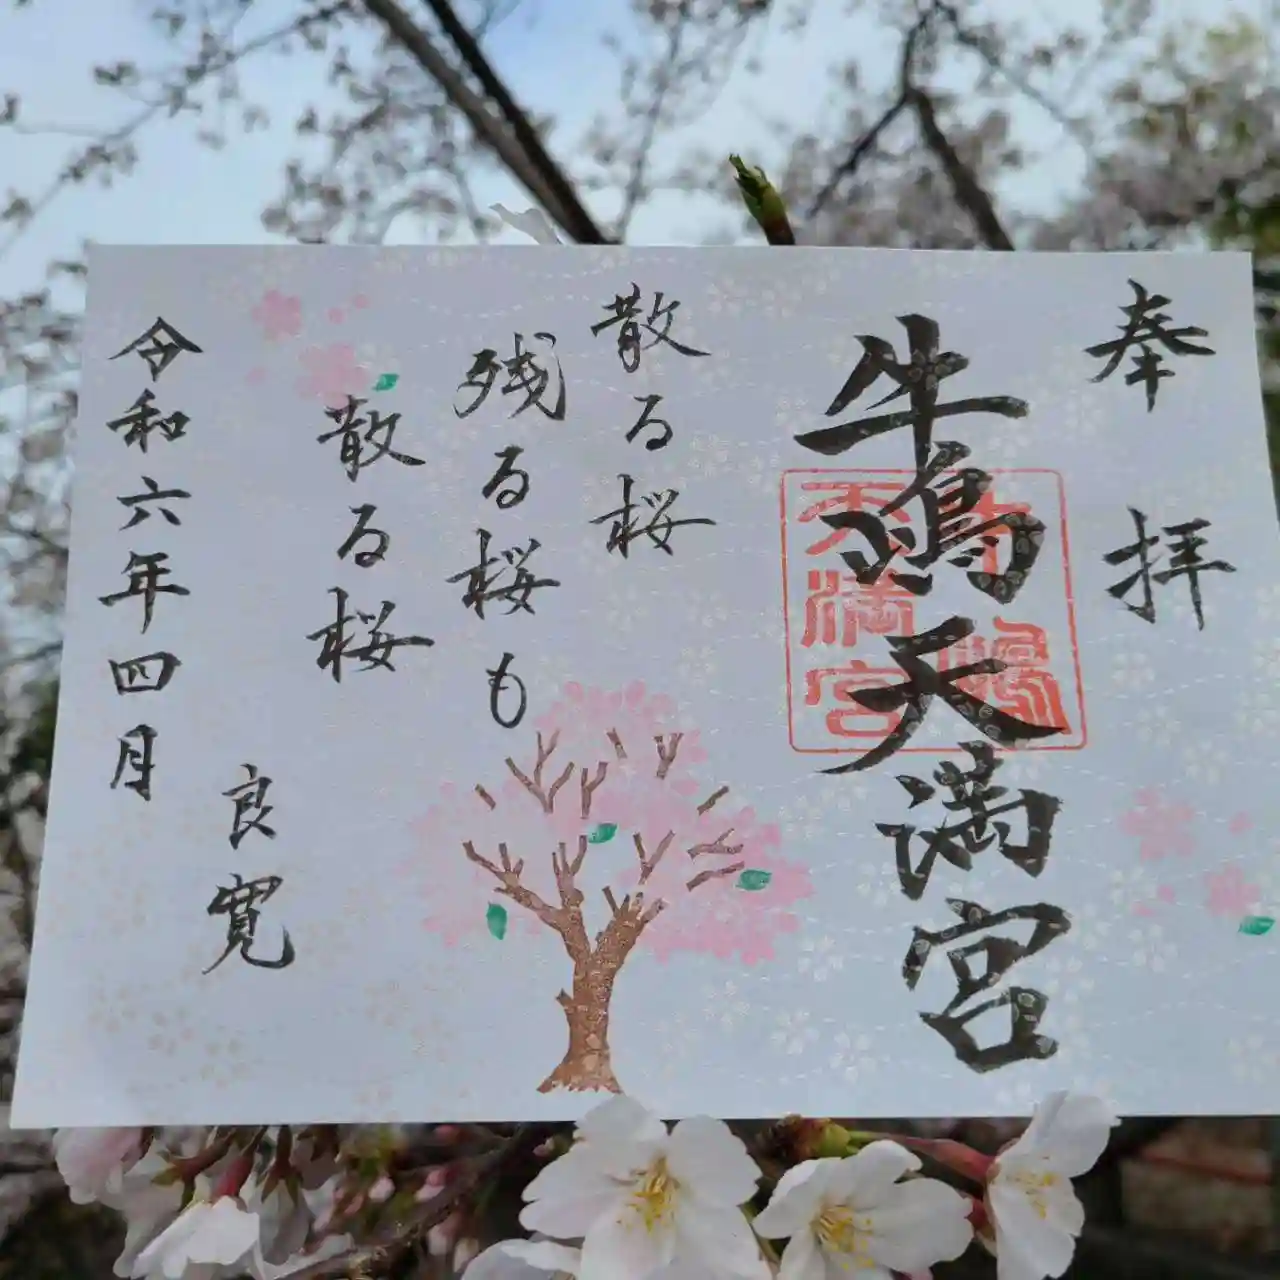 奉拝
牛嶋天満宮
牛嶋
天満宮
散る桜
残る桜も
散る桜
良寛
令和六年四月